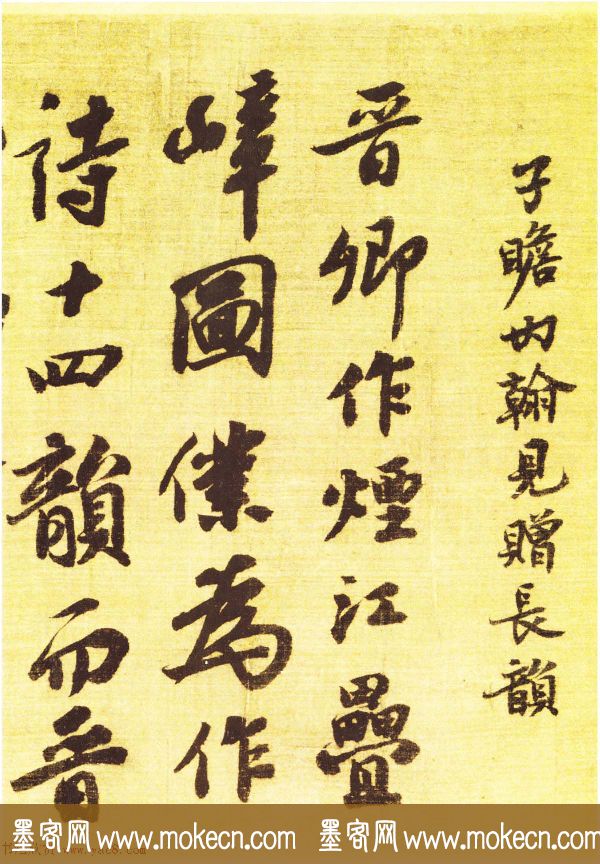 子瞻内翰見贈長韻
晋卿作煙江疊
嶂圖僕為作
詩十四韻而晋
墨客网 www.mokecn.com 墨客网 www.mokecn.com